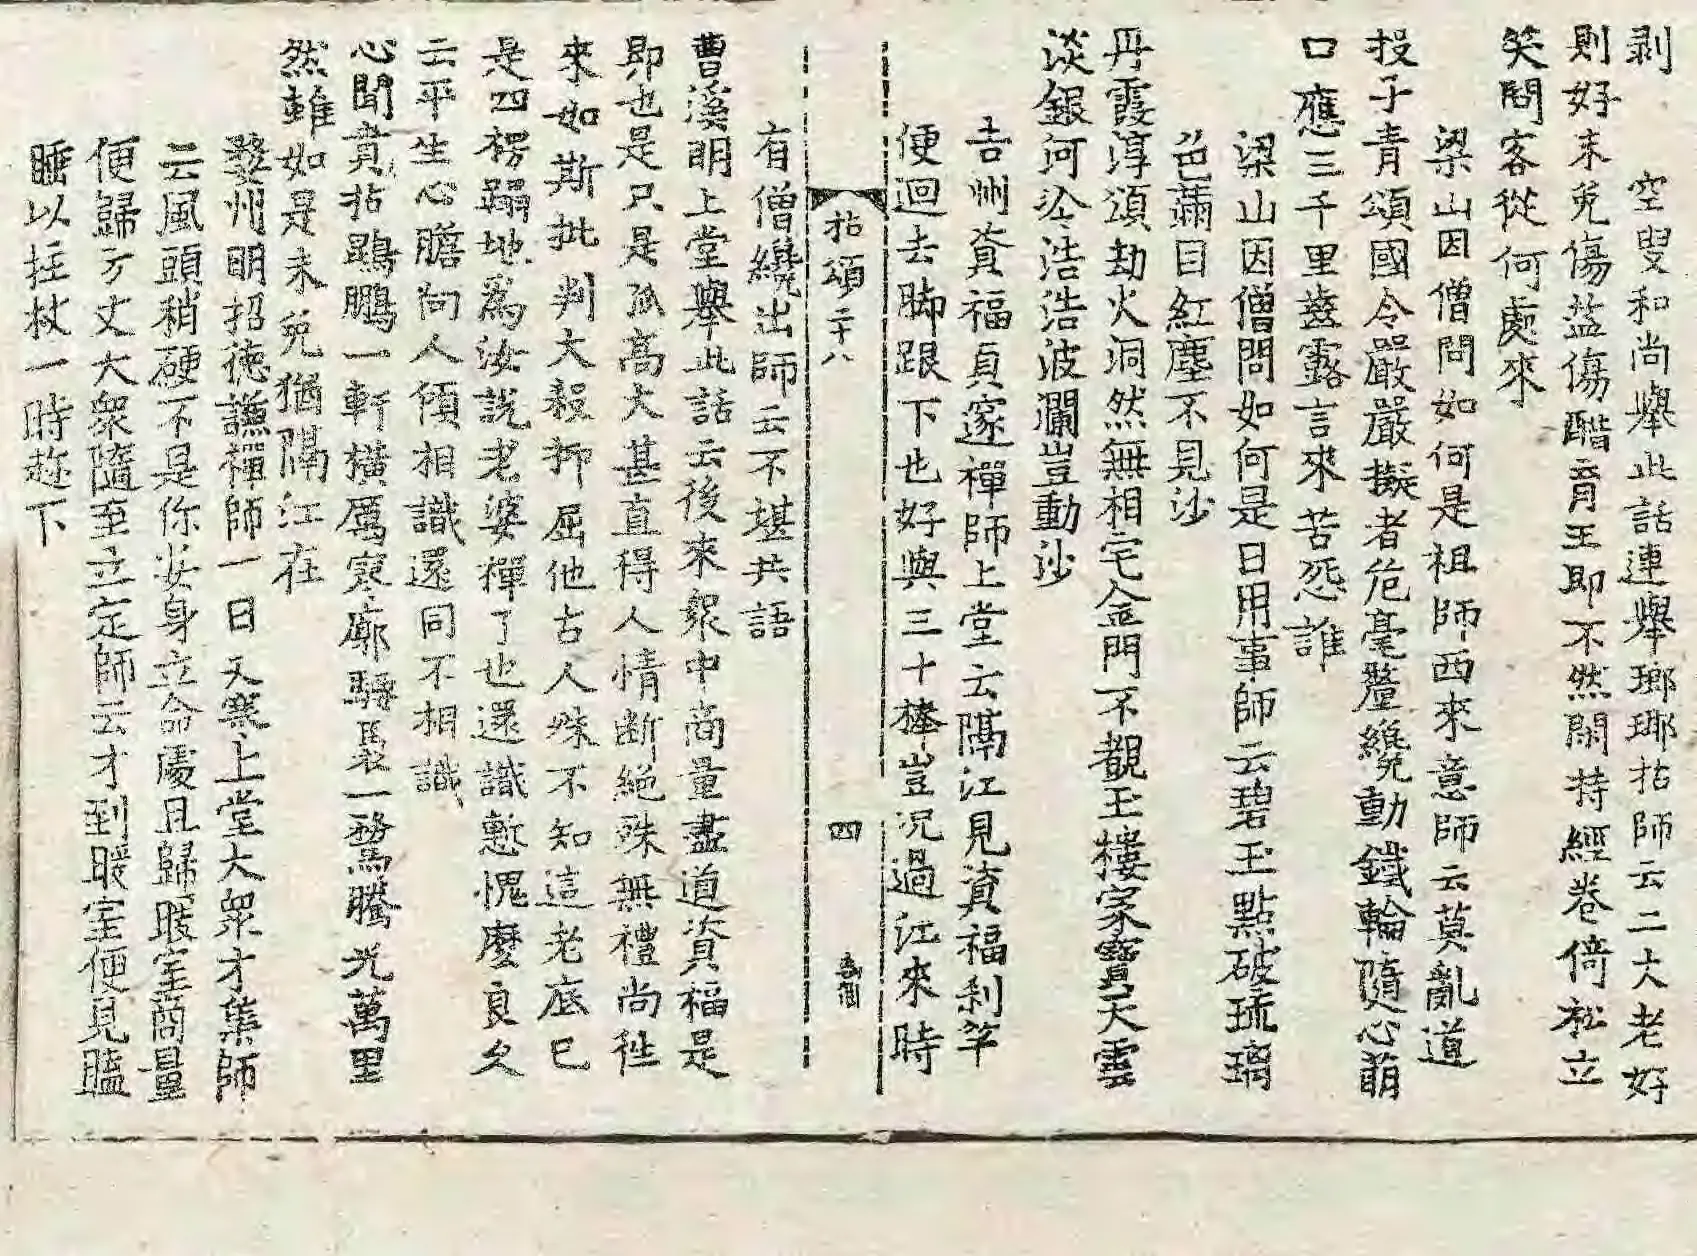 剥　空叟和尚舉此話連舉瑯琊拈師云二大老好
則好未免傷葢傷醋育王即不然閑持經卷倚松立
笑問客從何處來
梁山因僧問如何是祖師西來意師云莫亂道
投子青頌國令嚴嚴擬者危毫釐纔動鐵輪隨心萌
口應三千里齒露言來苦怨誰
梁山因僧問如何是日用事師云碧玉點破琉璃
色藕目紅塵不見沙
丹霞淳頌劫火洞然無相宅金門不覩玉樓家寶天雲
淡銀河冷浩浩波瀾豈動沙
吉州資福貞邃禪師上堂云隔江見資福刹竿
便迴去脚跟下也好與三十棒豈况過江來時
拈頌二十八　四
有僧纔出師云不堪共語
曹溪明上堂舉此話云後來衆中商量盡道資福是
即也是只是孤高大甚直得人情斷絕殊無禮尚往
來如斯批判大殺抑屈他古人殊不知這老底已
是四楞蹋地爲汝說老婆禪了也還識慙愧麽良久
云平生心膽向人傾相識還同不相識
心聞賁拈鵾鵬一軒橫厲寥廓騕褭一騖騰光萬里
然雖如是未免猶隔江在
婺州明招德謙禪師一日天寒上堂大衆才集師
云風頭稍硬不是你安身立命處且歸暖室商量
便歸方丈大衆隨至立定師云才到暖室便見瞌
睡以拄杖一時趂下